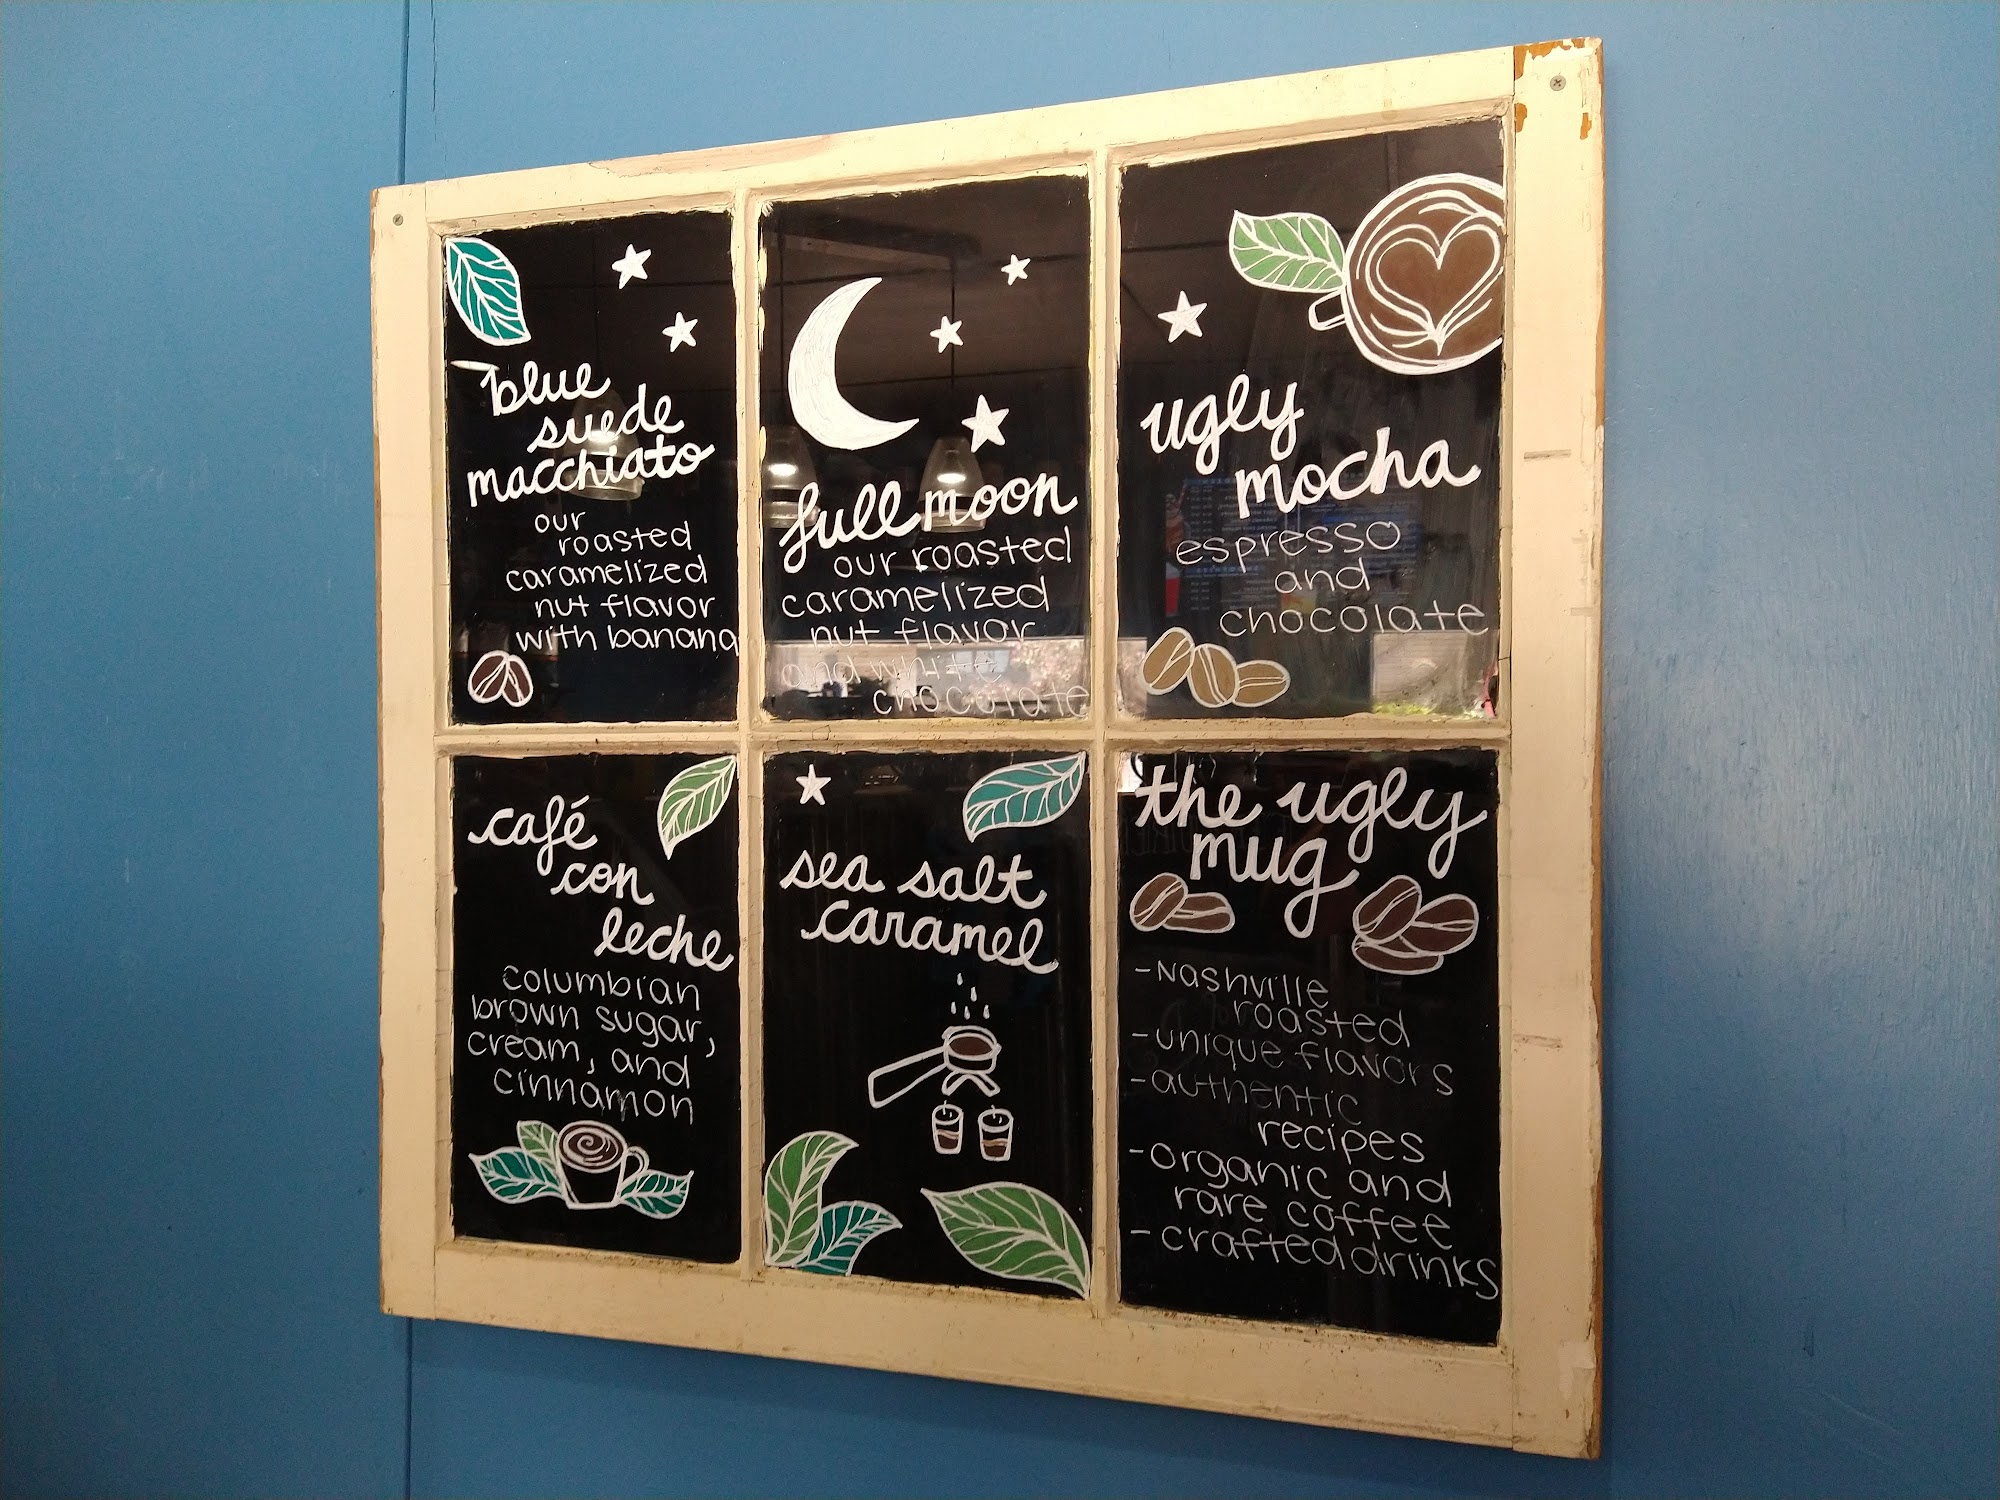 blue
suede
macchiato
our
roasted
caramelized
nut flavor
with banana
full moon
our roasted
caramelized
nut flavor
and white
chocolate
ugly
mocha
espresso
and
chocolate
café
con
leche
columbian
brown sugar,
cream, and
cinnamon
sea salt
caramel
the ugly
mug
-Nashville
roasted
-unique flavors
-authentic
recipes
-organic and
rare coffee
-crafted drinks